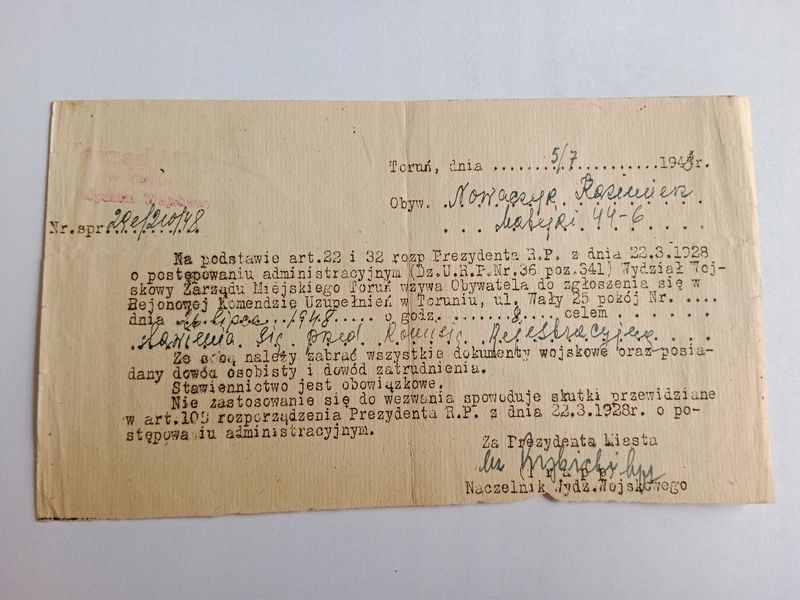 Toruń, dnia .......5/7...........1948r.
Obyw. Nowaczyk Kazimierz
Matejki 44-6
Nr.spr.
Na podstawie art.22 i 32 rozp Prezydenta R.P. z dnia 22.3.1928
o postępowaniu administracyjnym (Dz.U.R.P.Nr.36 poz.341) Wydział Woj-
skowy Zarządu Miejskiego Toruń wzywa Obywatela do zgłoszenia się w
Rejonowej Komendzie Uzupełnień w Toruniu, ul. Wały 25 pokój Nr. ....
dnia lipca 1948..... o godz. .......8.... celem .......
stawienia się przed Komisją Rejestracyjną
Ze sobą należy zabrać wszystkie dokumenty wojskowe oraz posia-
dany dowód osobisty i dowód zatrudnienia.
Stawiennictwo jest obowiązkowe.
Nie zastosowanie się do wezwania spowoduje skutki przewidziane
w art.109 rozporządzenia Prezydenta R.P. z dnia 22.3.1928r. o po-
stępowaniu administracyjnym.
Za Prezydenta Miasta
Naczelnik Wydz.Wojskowego